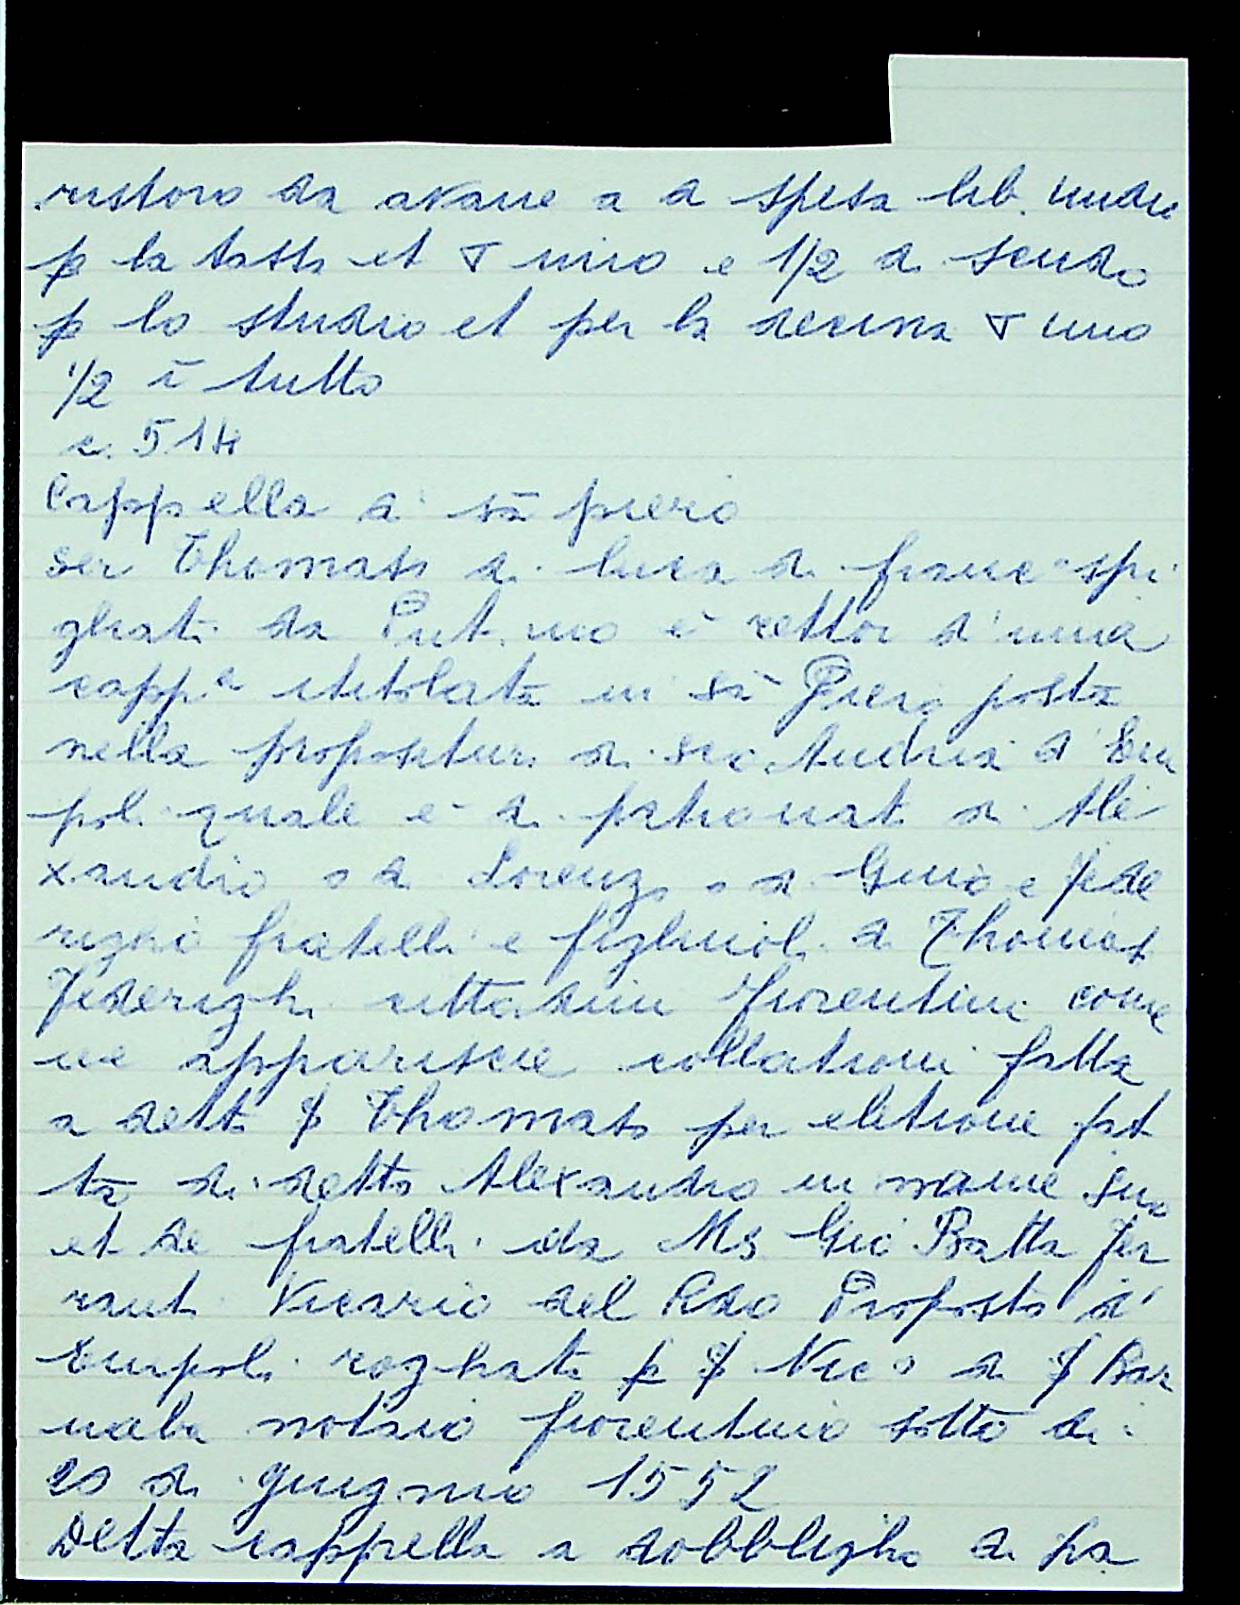 ristoro da avane a di spesa lib. undici
p la tassa et ∇ uno e 1/2 di scudo
p lo studio et per la decima ∇ uno
1/2 ī tutto
c. 514
Cappella di sā piero
ser Thomaso di luca di franc° spi
gliati da Put. mo è rettor d'una
capp.a ititolata in sā Piero posta
nella propositura di sco Andrea d'Em
poli quale è di patronat di Ale
xandro e di Lorenzo e di Gino e fede
righo fratelli e figliuoli di Thomas
Federighi cittadini fiorentini come
ne appariscie collationi fatta
a detto ∮ Thomaso per eletione fat
ta di detto Alexandro in nome suo
et de fratelli da Ms Gio Batta Fer
ranti Vicario del Rdo Proposto d'
Empoli roghato p ∮ Nic° di ∮ Bar
naba notaio fiorentino sotto di
20 di giugnio 1552
Detta cappella a dobbligho di fa